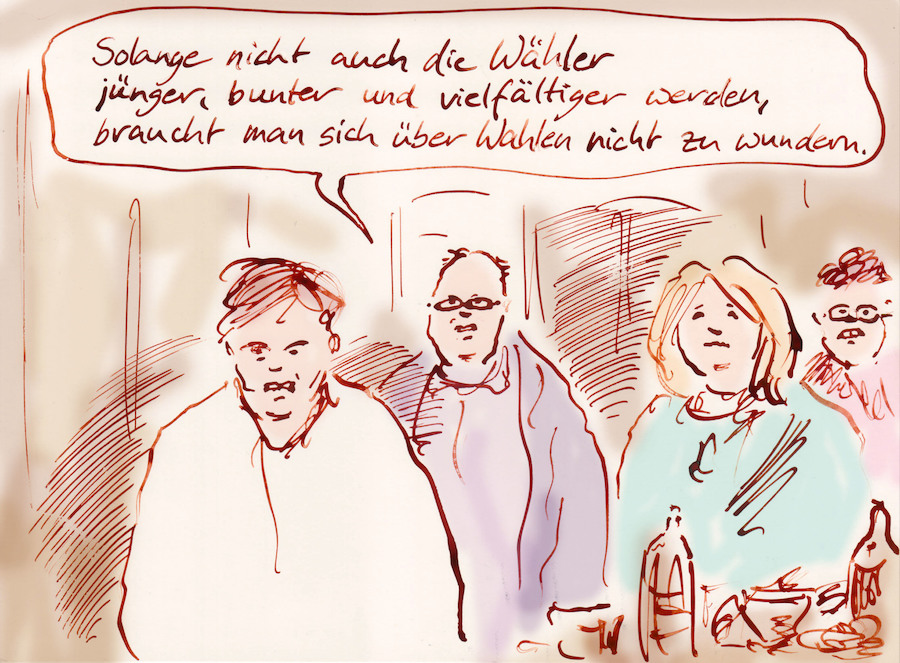 Solange nicht auch die Wähler
jünger, bunter und vielfältiger werden,
braucht man sich über Wahlen nicht zu wundern.